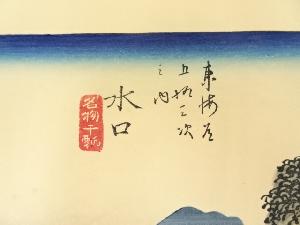 東海道
五拾三次
之内
水口
名物干瓢